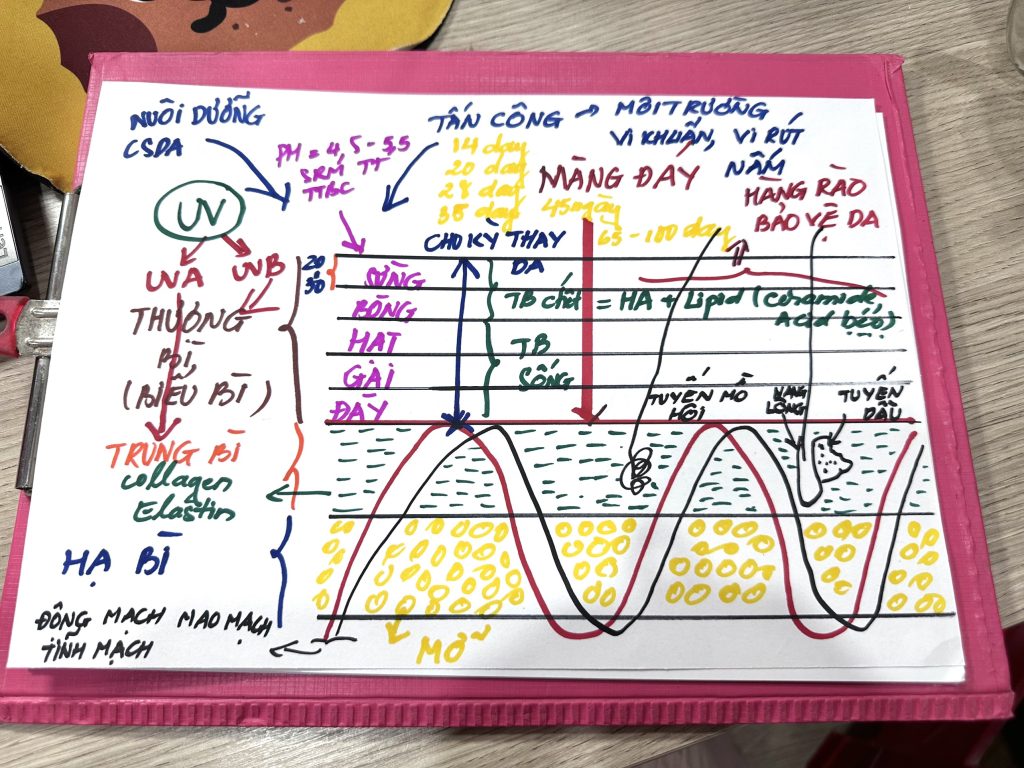 NUÔI DƯỠNG
CSDA
PH = 4,5 - 5,5
SRM TT
TTBC
TẤN CÔNG → MÔI TRƯỜNG
VI KHUẨN, VI RÚT
NẤM
14 day
20 day
28 day
35 day 45 ngày
65 - 100 day
MÀNG ĐÁY
HÀNG RÀO
BẢO VỆ DA
CHO KỲ THAY
DA
UV
UVA UVB
THƯỢNG
BÌ
(BIỂU BÌ)
20
30
SỪNG
BÓNG
HẠT
GAI
ĐÁY
TB chết = HA + Lipid (Ceramide,
Acid béo)
TB
SỐNG
TUYẾN MỒ
HÔI
NANG
LÔNG
TUYẾN
DẦU
TRUNG BÌ
Collagen
Elastin
HẠ BÌ
ĐỘNG MẠCH MAO MẠCH
TĨNH MẠCH
MỠ